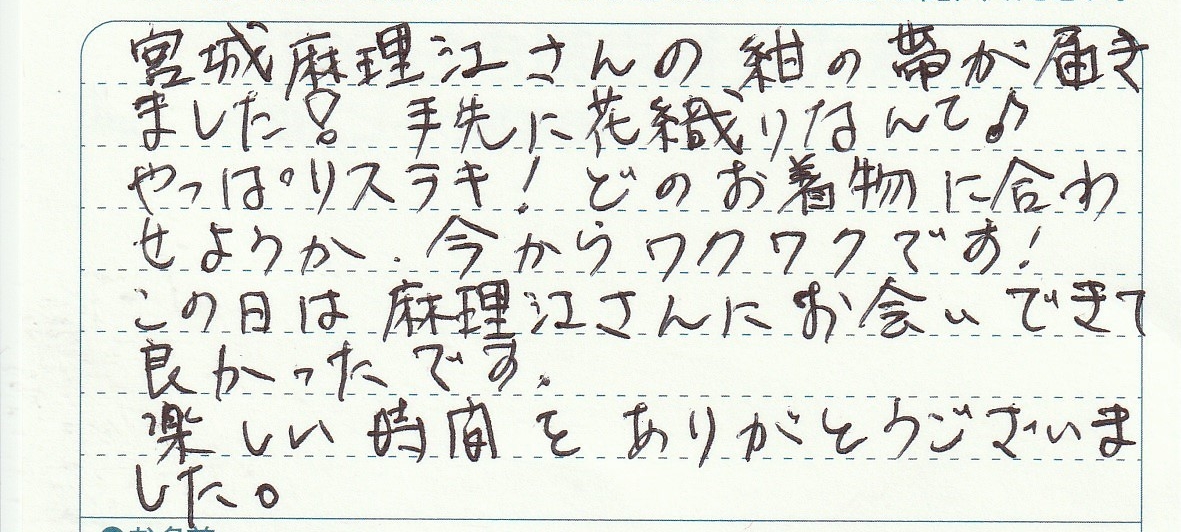 宮城麻理江さんの紺の帯が届き
ました！ 手先に花織りなんて♪
やっぱりステキ！どのお着物に合わ
せようか．今からワクワクです！
この日は麻理江さんにお会いできて
良かったです．
楽しい時間をありがとうございま
した。